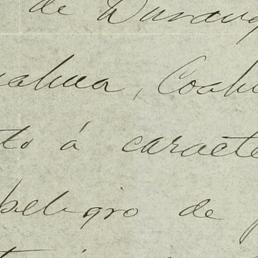 de Durang
ahua, Coahu
to á caracte
peligro de